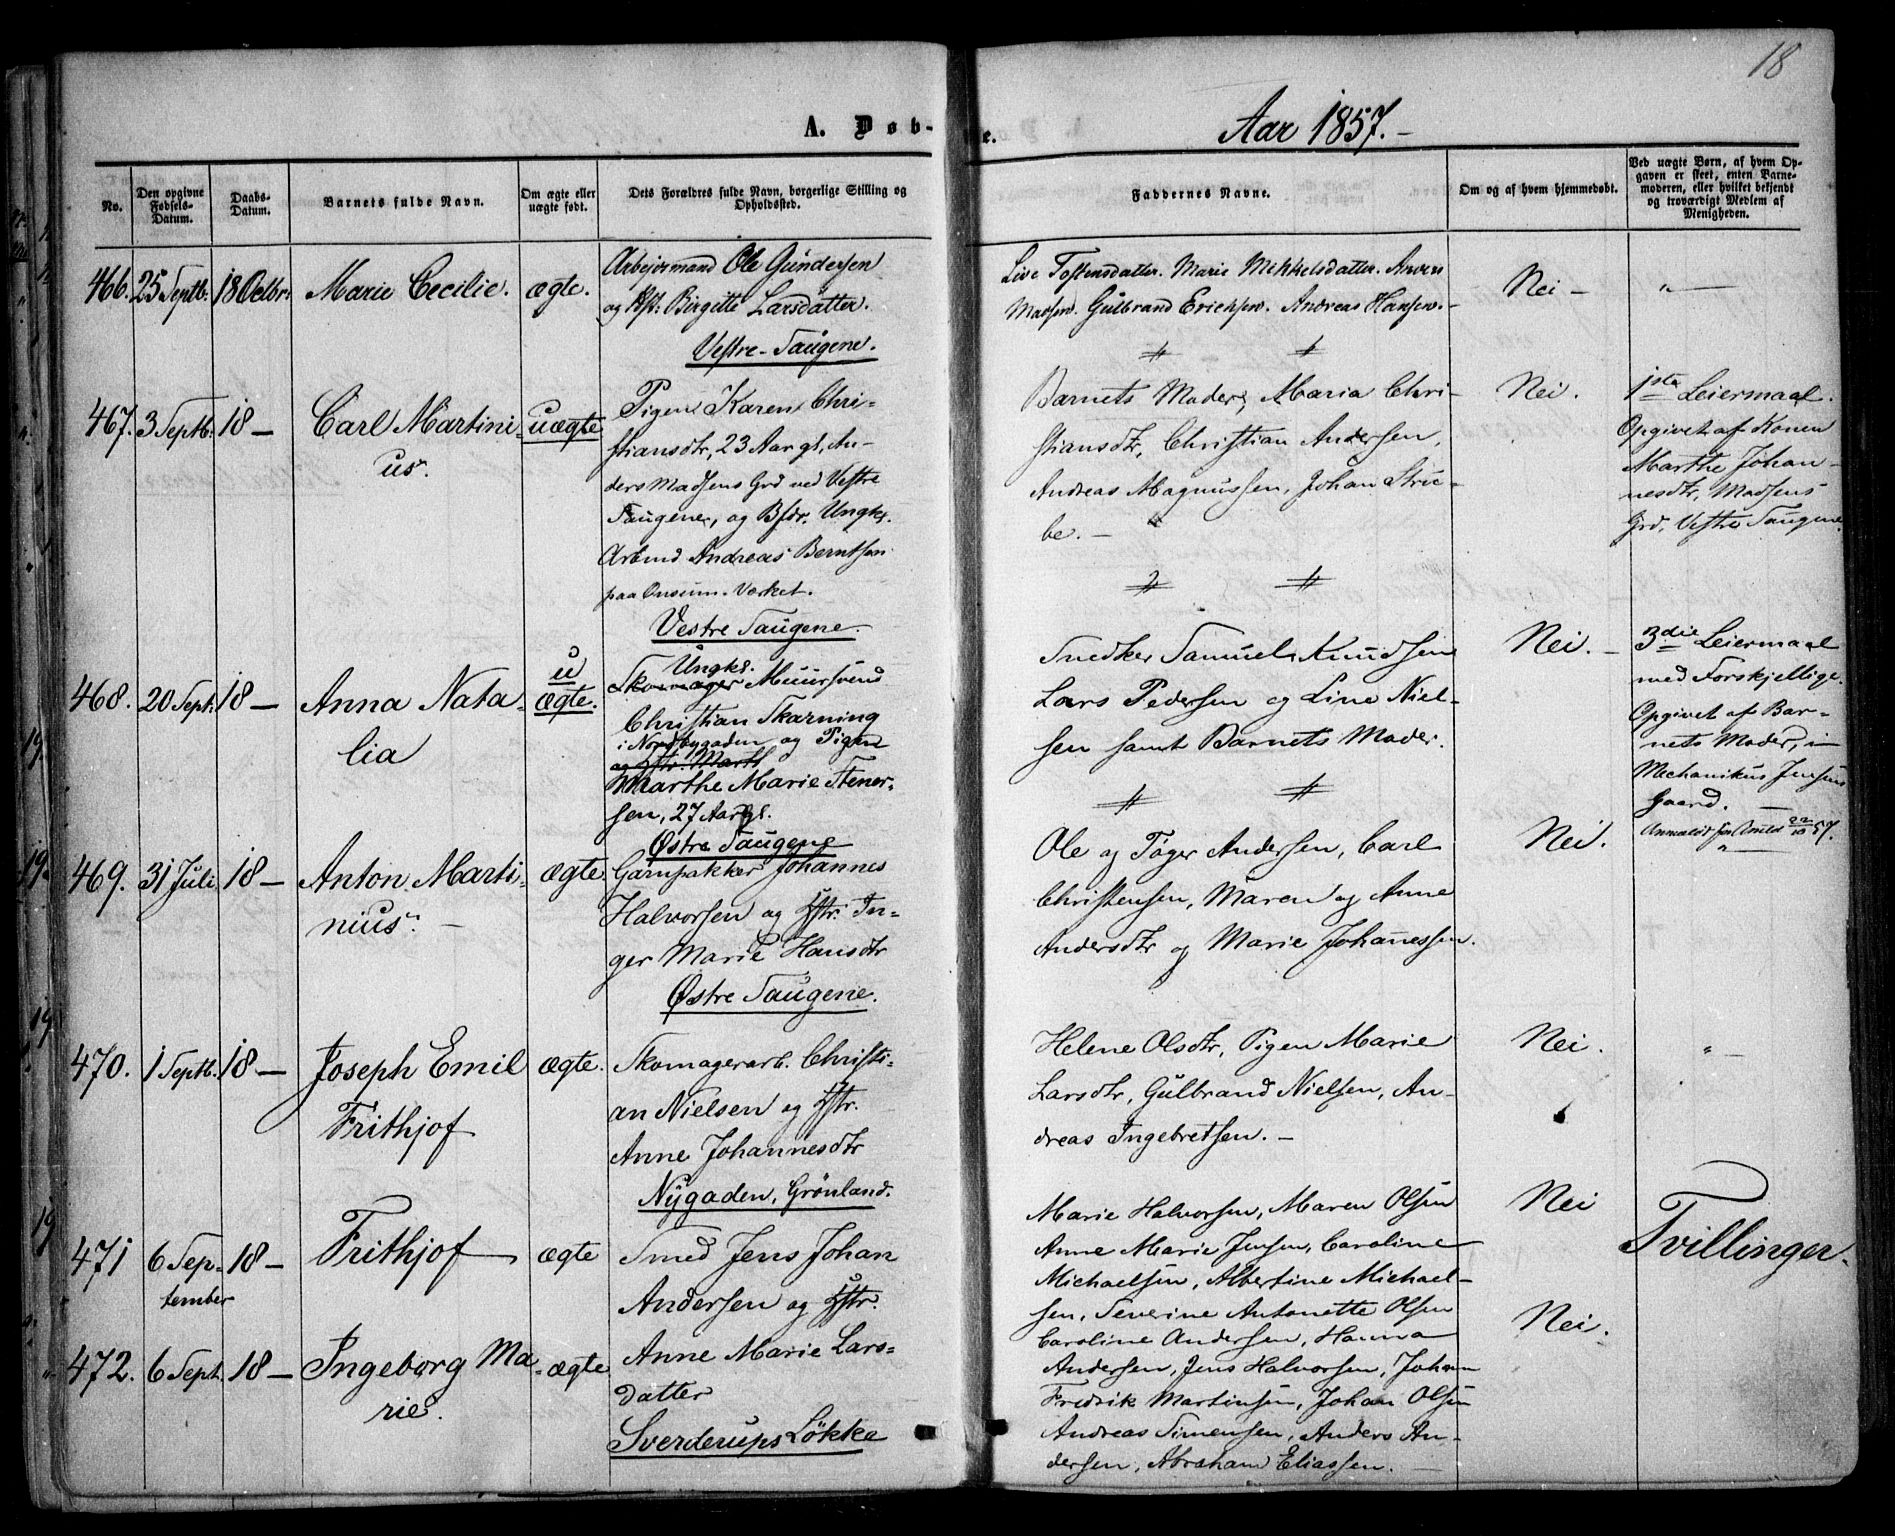 18
A. Døb-
e.
Aar 1857.-
No.
Den opgivne Fødsels-Datum.
Daabs-Datum.
Barnets fulde Navn.
Om ægte eller uægte født.
Dets Forældres fulde Navn, borgerlige Stilling og Opholdssted.
Faddernes Navne.
Om og af hvem hjemmedøbt.
Ved uægte Børn, af hvem Opgaven er skeet, enten Barnemoderen, eller hvilket bekjendt og troværdigt Medlem af Menigheden.
466. 25 Septb. 18 Octbr. Marie Cecilie. ægte.
Arbejdsmand Ole Gundersen
og Hst. Birgitte Larsdatter.
Vestre-Taugene.
Live Tostensdatter. Marie Mikkelsdatter. Anders
Madsen. Gulbrand Erichsen. Andreas Hansen.
Nei - " -
467. 3 Septb. 18 - Carl Martini-
us.
uægte
Pigen Karen Chri-
stiansdtr, 23 Aar gl, An-
ders Madsens Grd ved Vestre
Taugene, og Bfdr. Ungk.
Arbmd Andreas Berntsen
paa Onsum-Værket.
Vestre Taugene.
Barnets Moder, Maria Chri-
stiansdtr, Christian Andersen,
Andreas Magnussen, Johan Stru-
be. -
Nei.
1ste Leiermaal.
Opgivet af Konen
Marthe Johan-
nesdtr, Madsens
Grd, Vestre Taugene
468. 20 Sept. 18 - Anna Nata-
lia
u
ægte.
Ungk.
Skomager Muursvend
Christian Skarning
i Nordbygaden og Pigen
og Hstr. Marth
Marthe Marie Stener-
sen, 27 Aar gl.
Østre Taugene
Snedker Samuel Knudsen
Lars Pedersen og Line Niel-
sen samt Barnets Moder.
Nei. -
3die Leiermaal
med Forskjellige.
Opgivet af Bar-
nets Moder, i
Mechanikus Jensens
Gaard. -
Anmeldt for 22/10 57.
469. 31 Juli 18 - Anton Marti-
nius. -
ægte
Garnpakker Johannes
Halvorsen og Hstr. In-
ger Marie Hansdtr
Østre Taugene.
Ole og Tøger Andersen, Carl
Christensen, Maren og Anne
Andersdtr og Marie Johanessen.
Nei. "
470. 1 Septb. 18 - Joseph Emil
Frithjof
ægte.
Skomagerarb. Christi-
an Nielsen og Hstr.
Anne Johannesdtr
Nygaden, Grønland.
Helene Olsdtr, Pigen Marie
Larsdtr, Gulbrand Nielsen, An-
dreas Ingebretsen. -
Nei. " -
471 6 Sep-
tember
18 - Frithjof ægte
Smed Jens Johan
Andersen og Hstr.
Nei
Tvillinger.
472. 6 Sept. 18 - Ingeborg Ma-
rie.
ægte
Anne Marie Lars-
datter
Sverderups Løkke
Marie Halvorsen, Maren Olsen
Anne Marie Jensen, Caroline
Michaelsen, Albertine Michael-
sen, Severine Antonette Olsen
Caroline Andersen, Hanna
Andersen, Jens Halvorsen, Johan
Fredrik Martinsen, Johan Olsen
Andreas Simensen, Anders An-
dersen, Abraham Eliassen. -
Nei.